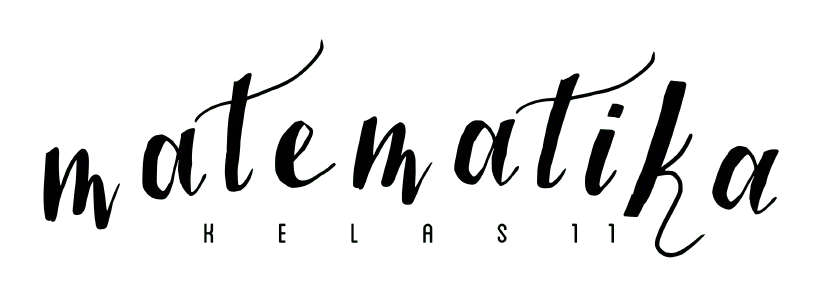 matematika
KELAS 11